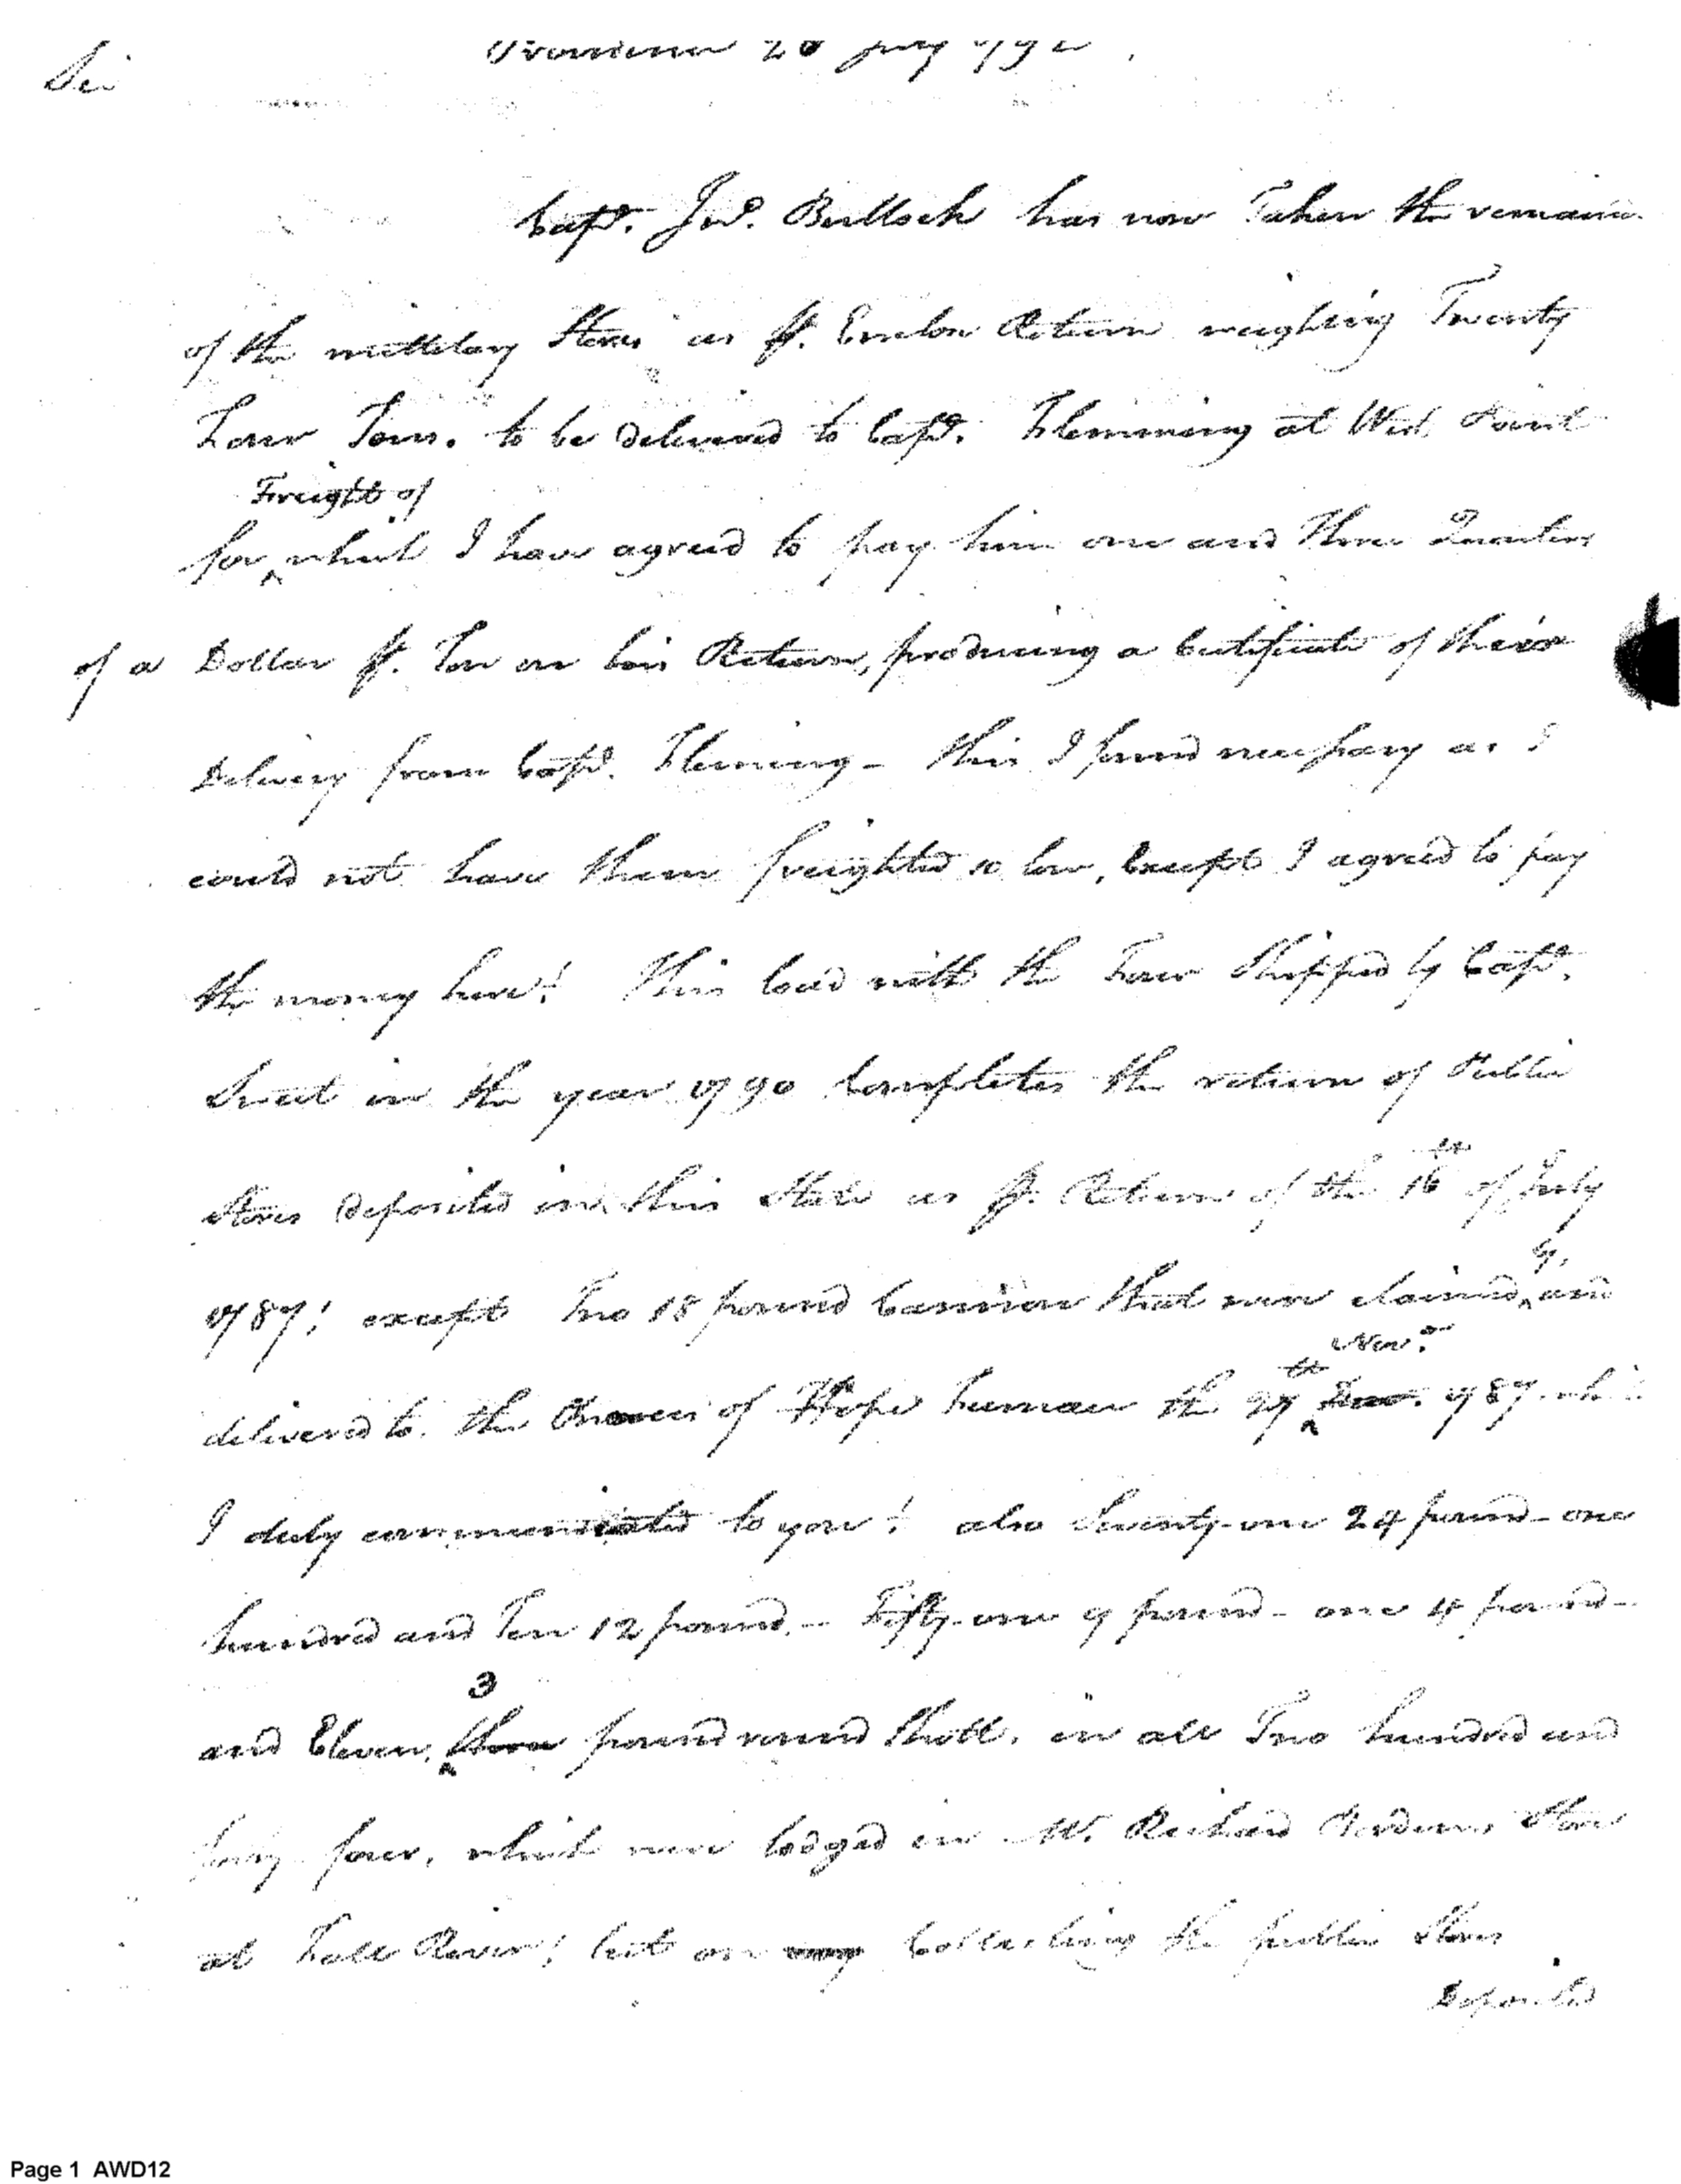 Sir
Providence 20 July 1792
Capt. Jno. Bullock has now Taken the remain
of the millitary Stores as pr. Enclos Return weighing Twenty
Four Tons. to be delivered to Capt. Flemming at West Point
Freight of
for which I have agreed to pay him one and three Quarters
of a Dollar pr. Ton on his Return, producing a Certificate of their
Delivery from Capt. Fleming - this I found necessary as I
could not have them freighted so low, Except I agreed to pay
the money here! This load with the Four Shipped by Capt.
in the year 1790 Compleates the return of Public
Stores Deposited in this State as pr. Return of the 16th of July
1787! except Two 18 pound Cannon that were claimed by, and
Novr.
delivered to the Owners of Hope Furnace the 27th 1787 whi
I duly communicated to you! also Seventy-one 24 pound - one
hundred and Ten 12 pound. - Fifty-one 9 pound - one 4 pound -
3
and Eleven three pound round Shott. in all Two hundred and
forty four, which were lodged in Mr. Richard Bordens Store
at Fall River! but on my Collecting the public Stores
Deposited
Page 1 AWD12